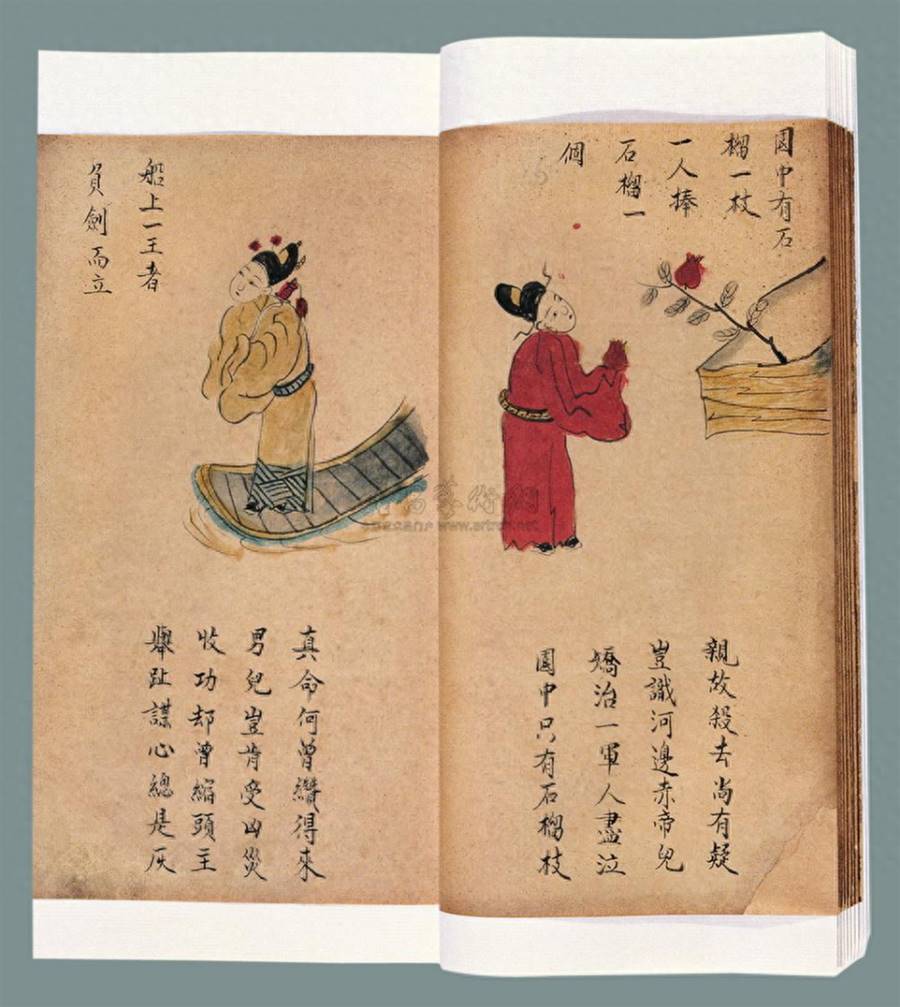 園中有石
榴一枝
一人捧
石榴一
個
親故殺去尚有疑
豈識河邊赤帝兒
嬌治一軍人盡泣
園中只有石榴枝
船上一王者
負劍而立
真命何曾纘得來
男兒豈肯受凶災
收功却曾縮頭主
舉趾謀心總是灰
藝術網
www.artron.net